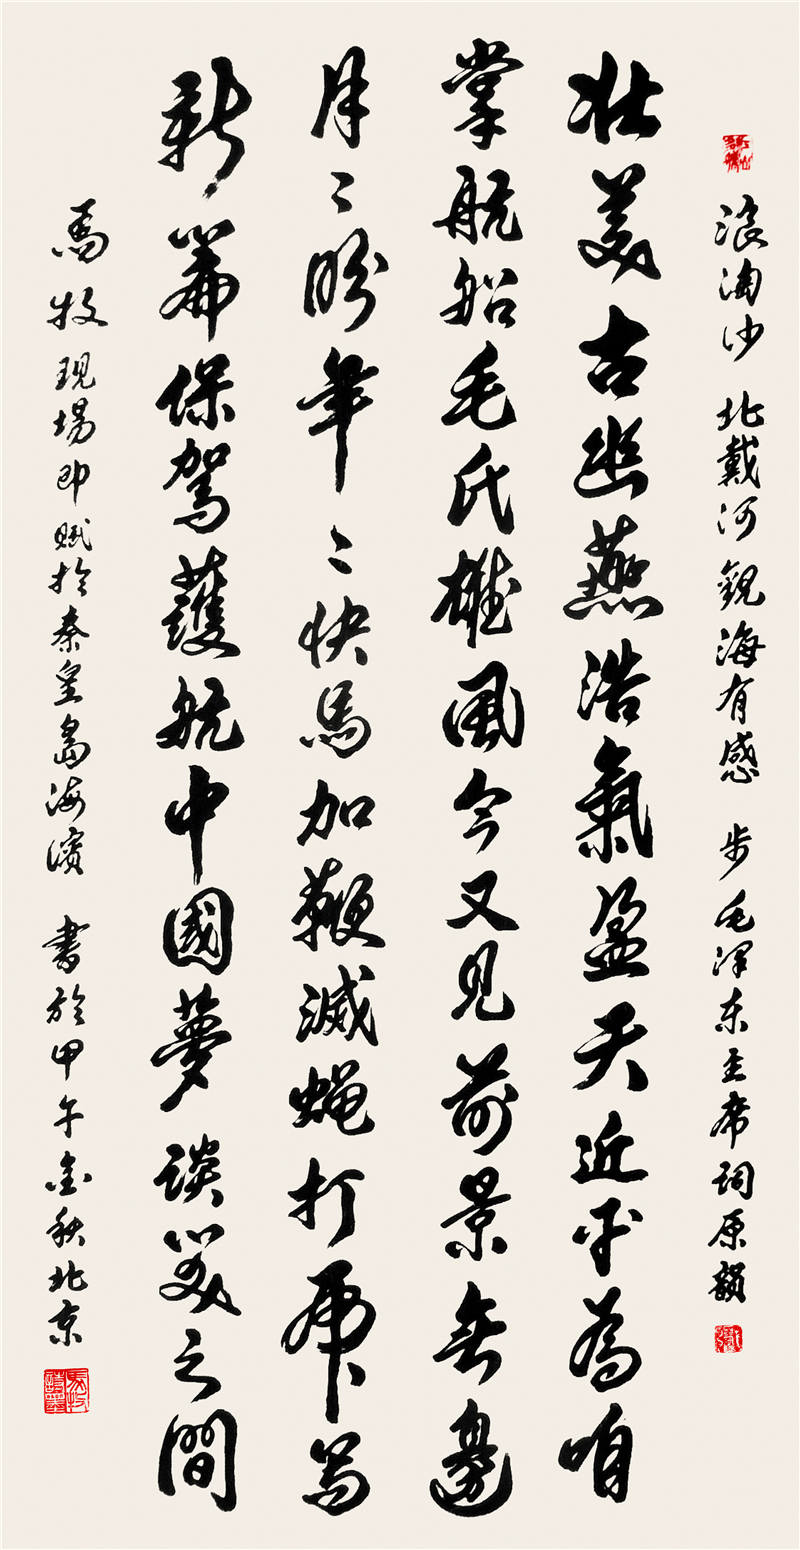 浪淘沙 北戴河觀海有感 步毛泽东主席词原韻
壮美古幽燕浩氣盈天近平為咱
掌航船毛氏雄風今又見前景無邊
月々盼年々快馬加鞭滅蝇打虎寫
新篇保駕護航中國夢談笑之間
馬牧現場即赋於秦皇島海濱 書於甲午金秋北京